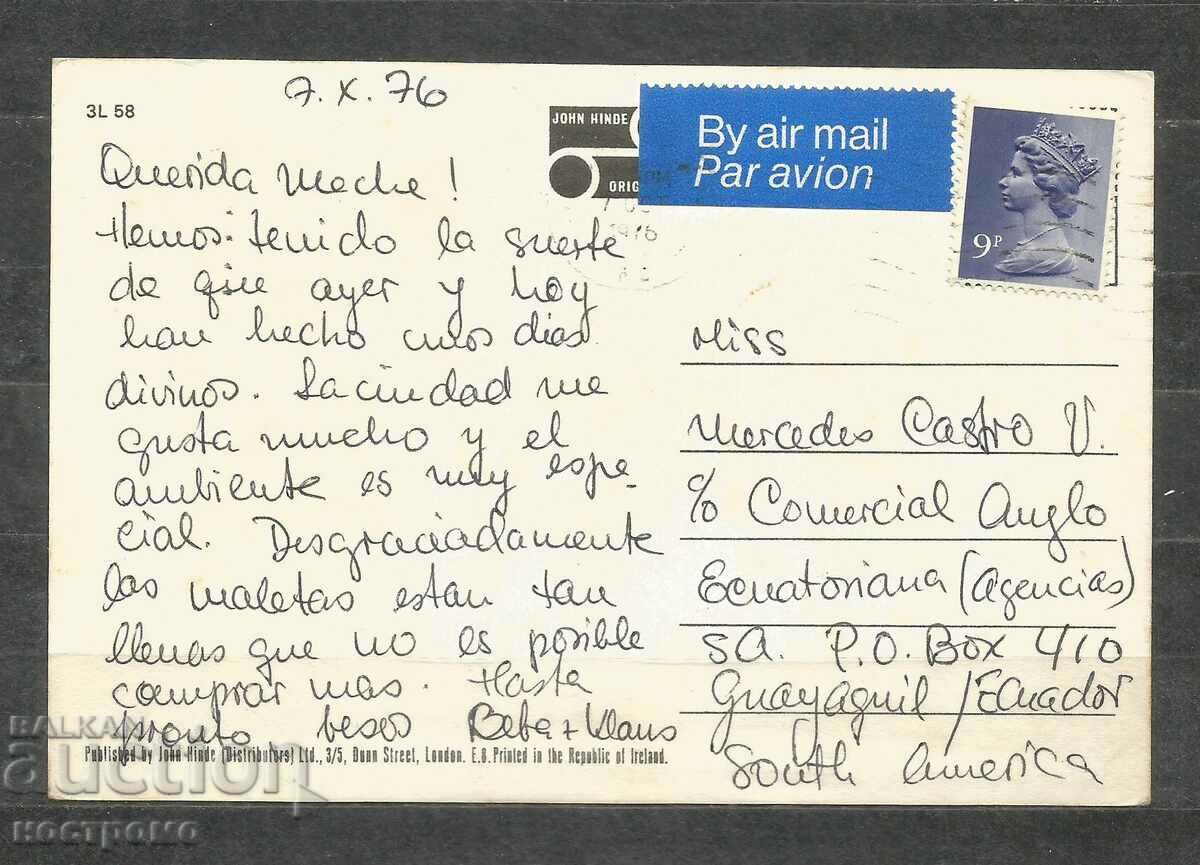 7.X.76
3L 58
JOHN HINDE
ORIG
By air mail
Par avion
9P
1976
Querida Meche!
Hemos tenido la suerte
de que ayer y hoy
han hecho unos dias
divinos. La ciudad me
gusta mucho y el
ambiente es muy espe-
cial. Desgraciadamente
las maletas estan tan
llenas que no es posible
comprar mas. Hasta
pronto besos Beba + Klaus
Miss
Mercedes Castro V.
c/o Comercial Anglo
Ecuatoriana (Agencias)
S.A. P.O. Box 410
Guayaquil / Ecuador
South America
Published by John Hinde (Distributors) Ltd., 3/5, Dunn Street, London. E.8. Printed in the Republic of Ireland.
BALKAN
auction
костромо